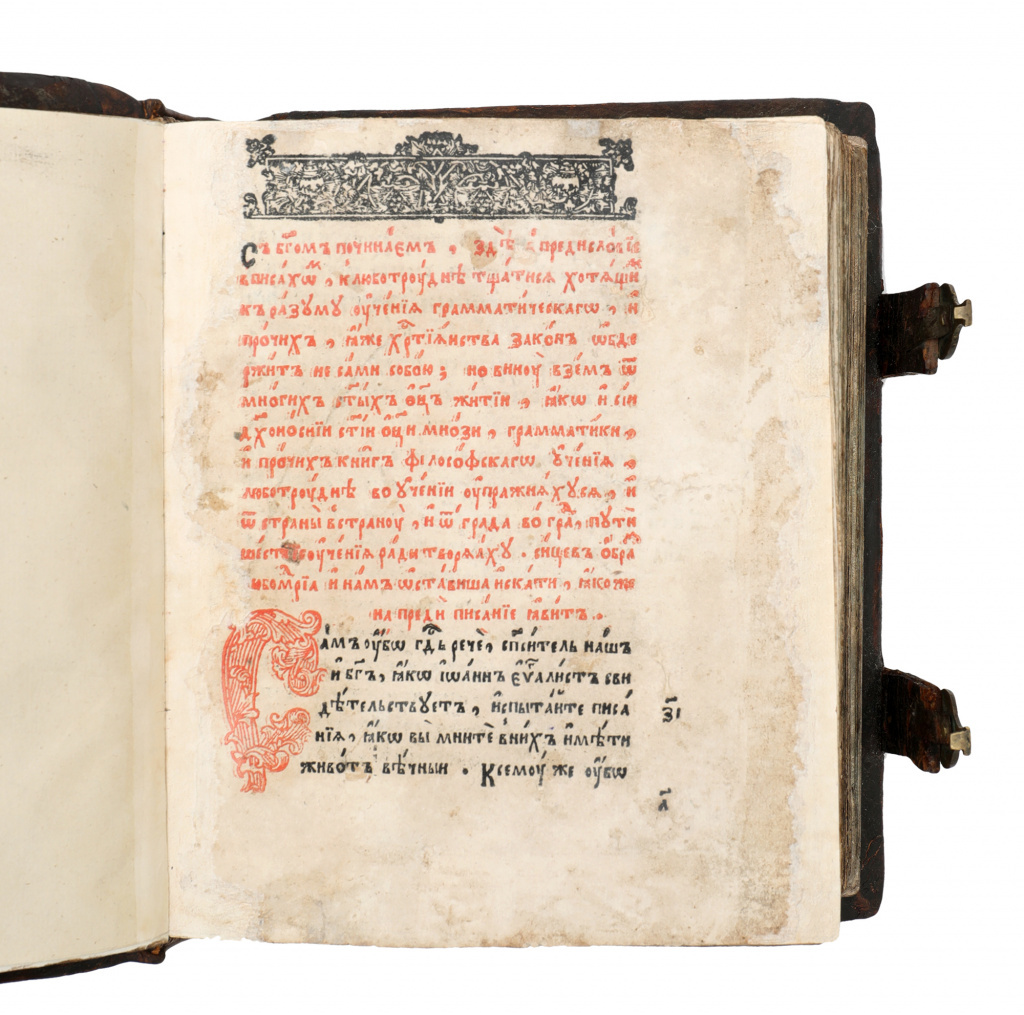 Съ бг҃омъ починаемъ , здѣ ѿ предисловїѧ
вписахѡⷨ , и҆ люботроу́днѣ тща́тисѧ хотѧ́щиⷨ
къ ра́зꙋмꙋ оу҆че́нїѧ грамматі́ческагѡ , и҆
про́чихъ , ꙗ҆́же хрⷭ҇тїѧ́нства зако́нъ ѡбде
ржи́тъ не са́ми собо́ю ; но виноу̀ взе́мъ ѿ
мно́гихъ ст҃ы́хъ ѻц҃ъ житїи , ꙗ҆́кѡ и҆ сїи
дх҃оно́снїи ст҃і́и ѻц҃ы мно́зи , грамма́тики ,
и҆ про́чихъ кни́гъ філосо́фскагѡ ᲂу҆че́нїѧ ,
люботроу́днѣ во ᲂу҆че́нїи оу҆пражнѧ́хꙋсѧ , и҆
ѿ страны̀ в странꙋ̀ , и҆ ѿ гра́да во граⷣ , пꙋти
ше́стїе оу҆че́нїѧ ра́ди творѧ́хꙋ . си́цевъ ѻбраⷥ
любомⷣрїѧ и҆ на́мъ ѡста́виша и҆ска́ти , ꙗ҆́коже
на преди писа́нїе ꙗ҆ви́тъ .
Са́мъ оу҆́бѡ гд҇ь речѐ , сп҃си́тель на́шъ
и҆ бг҃ъ , ꙗ҆́кѡ і҆ѡа́ннъ є҆ѵⷢ҇алистъ сви
дѣ́тельствꙋетъ , и҆спыта́йте писа́
нїѧ , ꙗ҆́кѡ вы̀ мнитѐ в ни́хъ и҆мѣ́ти
живо́тъ вѣ́чныи . К семоу́ же оу҆́бѡ
з҃і
а҃